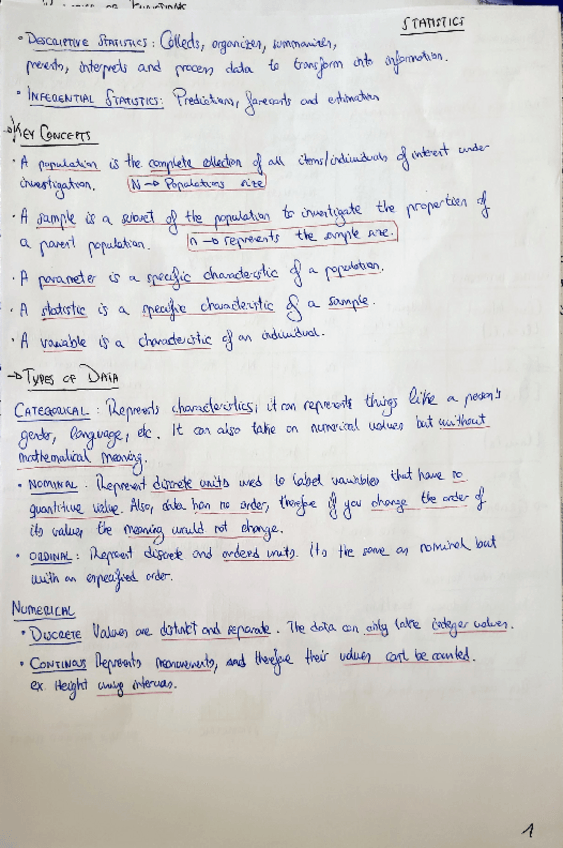 STATISTICS
• DESCRIPTIVE STATISTICS: Collects, organizes, summarizes,
presents, interprets and process data to transform into information.
• INFERENTIAL STATISTICS: Predictions, forecasts and estimation
→ KEY CONCEPTS
• A population is the complete collection of all items/individuals of interest under
investigation. N → Populations size
• A sample is a subset of the population to investigate the properties of
a parent population. n → represents the sample size.
• A parameter is a specific characteristic of a population.
• A statistic is a specific characteristic of a sample.
• A variable is a characteristic of an individual.
→ TYPES OF DATA
CATEGORICAL: Represents characteristics, it can represents things like a person's
gender, language, etc. It can also take on numerical values but without
mathematical meaning.
• NOMINAL: Represent discrete units used to label variables that have no
quantitive value. Also, data has no order, therefore if you change the order of
its values the meaning would not change.
• ORDINAL: Represent discrete and ordered units. Its the same as nominal but
with an especified order.
NUMERICAL
• DISCRETE Values are distinct and separate. The data can only take integer values.
• CONTINOUS Represents measurements, and therefore their values cant be counted.
ex. Height using intervals.
1